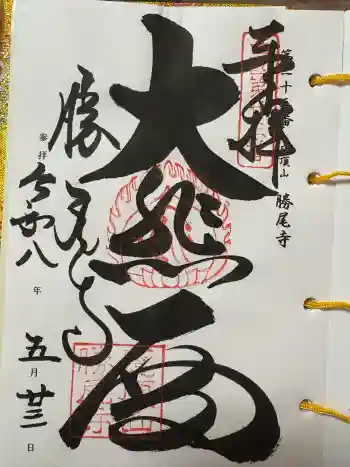 第二十三番 応頂山 勝尾寺
奉拝
大悲閣
勝尾寺
参拝 令和八年 五月廿三日